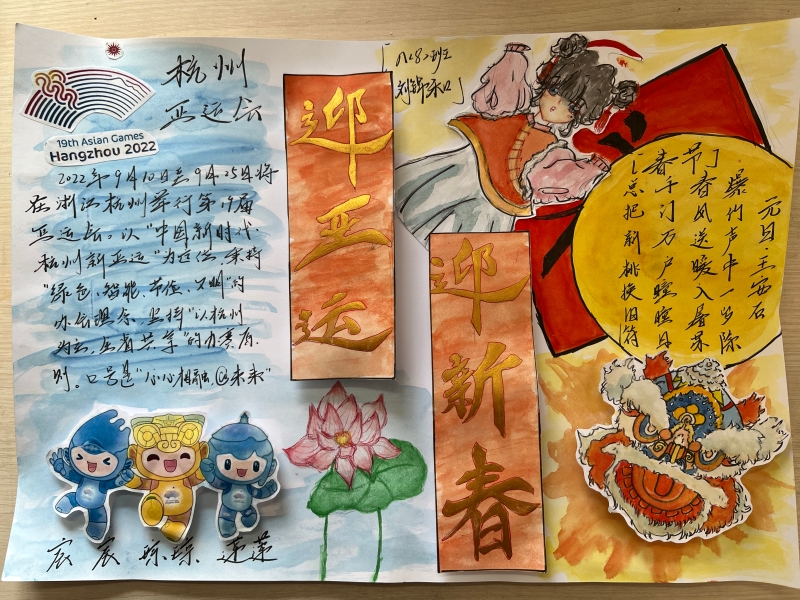 杭州
亚运会
19th Asian Games
Hangzhou 2022
2022年9月10日至9月25日将
在浙江杭州举行第19届
亚运会。以"中国新时代·
杭州新亚运"为定位、秉持
"绿色、智能、节俭、文明"的
办会理念、坚持"以杭州
为主,全省共享"的办赛原
则。口号是"心心相融,@未来"
宸宸 琮琮 莲莲
迎亚运
迎新春
八(28)班
元日·王安石
爆竹声中一岁除
春风送暖入屠苏
千门万户曈曈日
总把新桃换旧符
「春节」